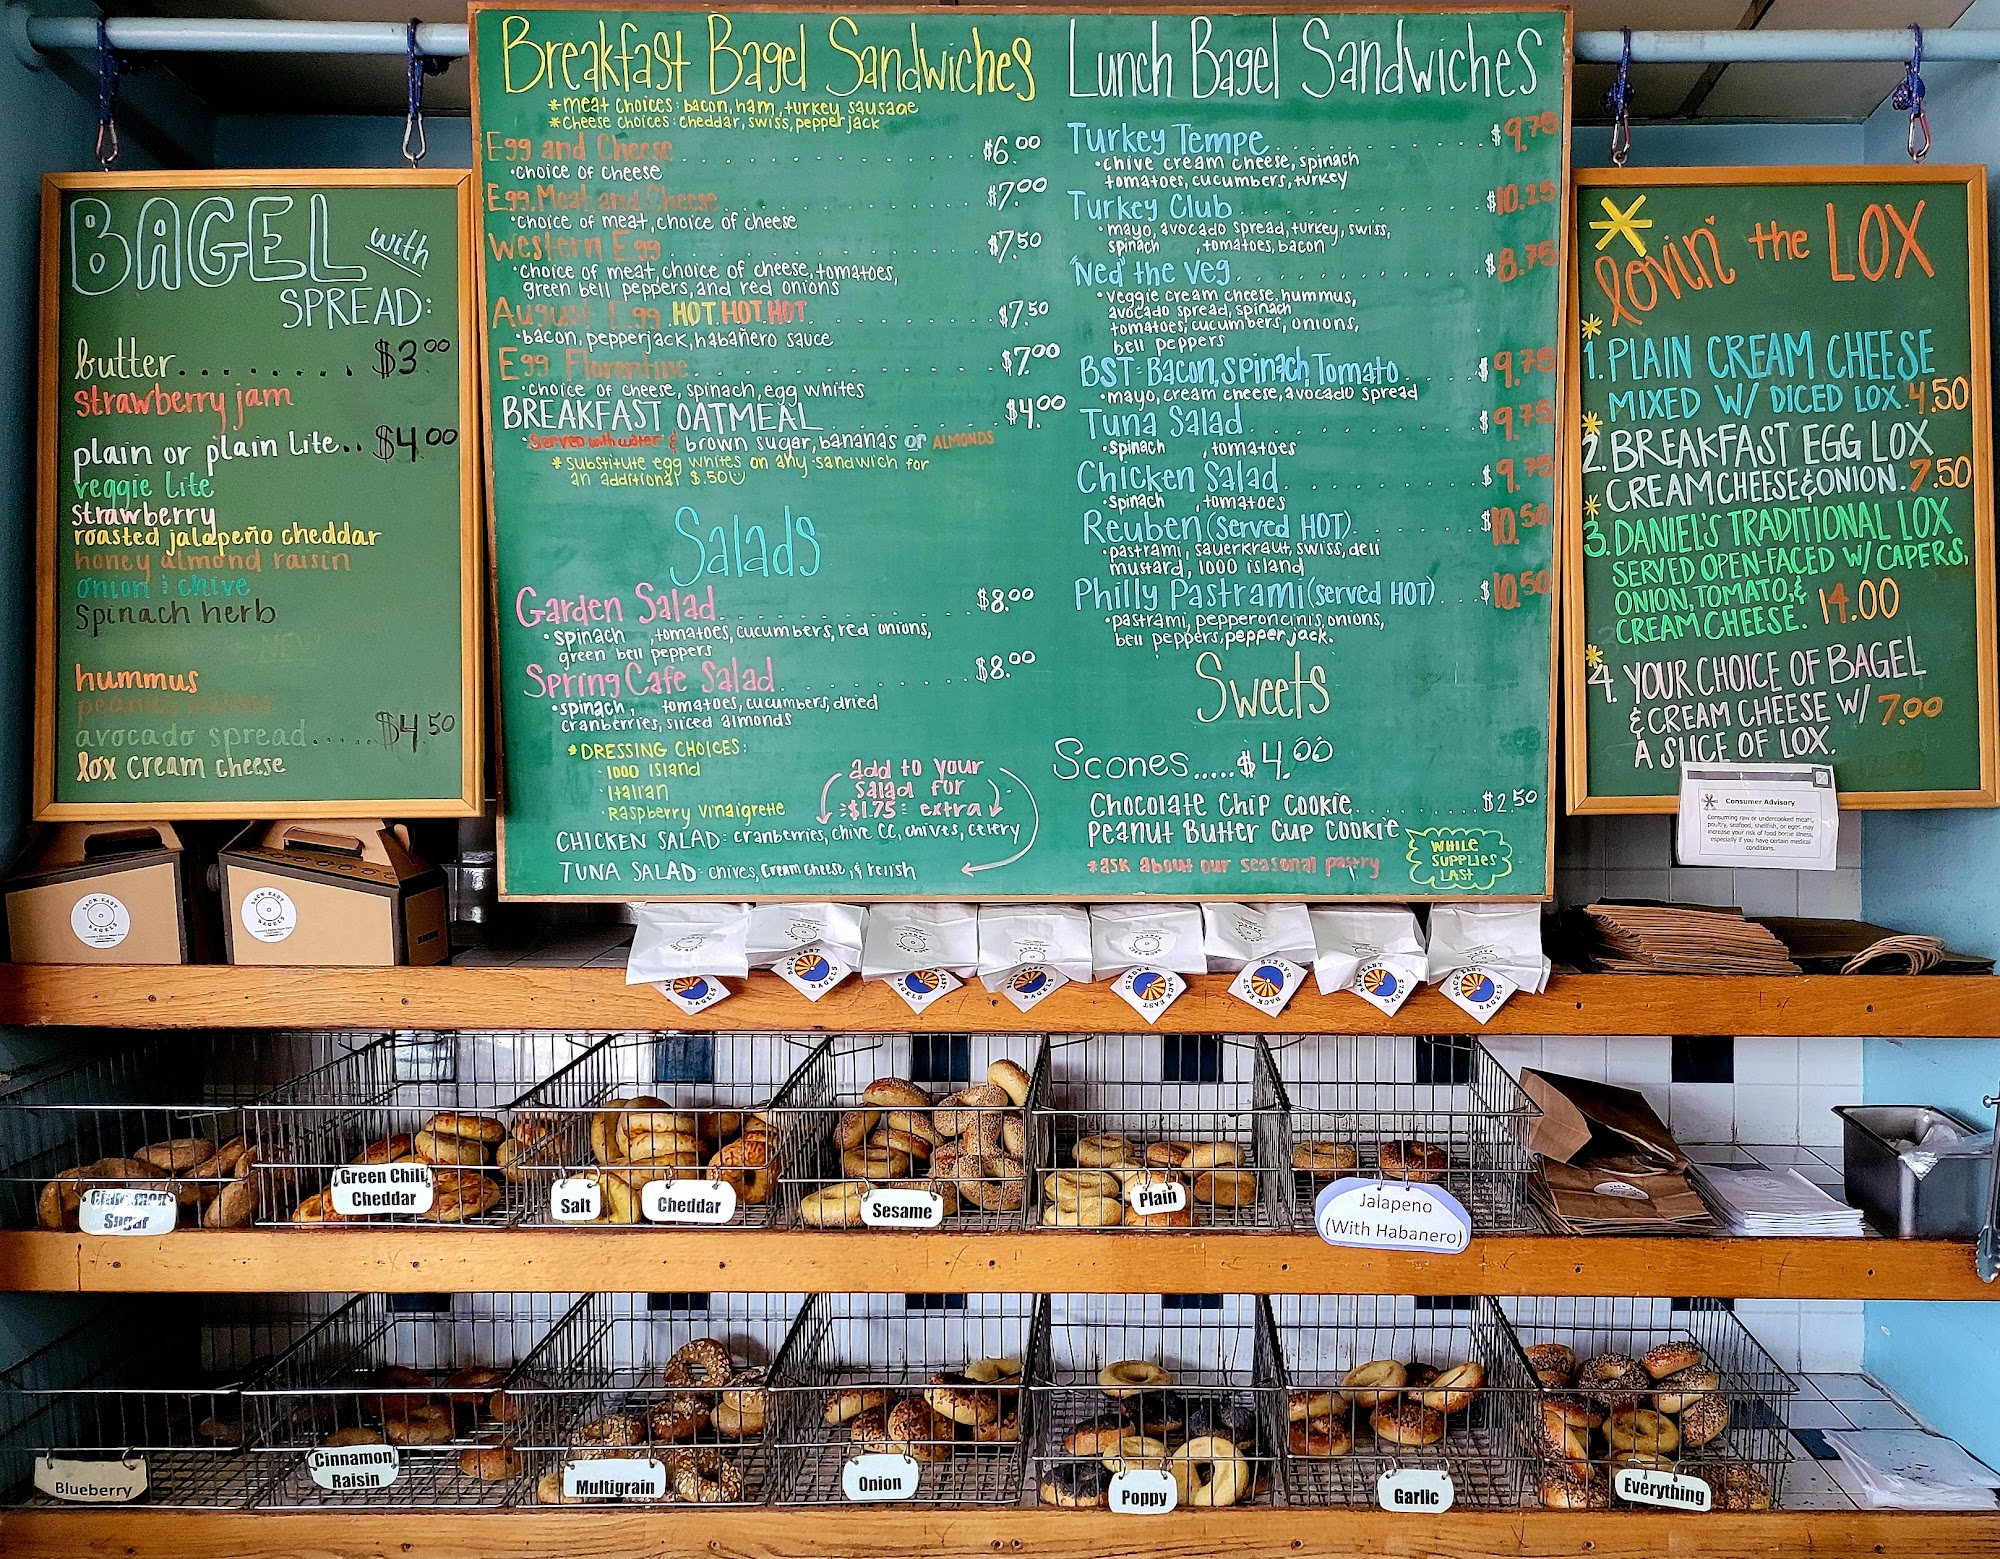 BAGEL with
SPREAD:
butter........ $3.00
strawberry jam
plain or plain lite.. $4.00
veggie lite
strawberry
roasted jalapeño cheddar
honey almond raisin
onion & chive
spinach herb
hummus
peanut butter
avocado spread..... $4.50
lox cream cheese
Breakfast Bagel Sandwiches
*meat choices: bacon, ham, turkey sausage
*cheese choices: cheddar, swiss, pepperjack
Egg and Cheese $6.00
•choice of cheese
Egg, Meat, and Cheese $7.00
•choice of meat, choice of cheese
Western Egg $7.50
•choice of meat, choice of cheese, tomatoes,
green bell peppers, and red onions
August Egg HOT.HOT.HOT $7.50
•bacon, pepperjack, habañero sauce
Egg Florentine $7.00
•choice of cheese, spinach, egg whites
BREAKFAST OATMEAL $4.00
•Served with water & brown sugar, bananas or ALMONDS
*substitute egg whites on any sandwich for
an additional $.50
Salads
Garden Salad $8.00
•spinach , tomatoes, cucumbers, red onions,
green bell peppers
Spring Cafe Salad $8.00
•spinach, tomatoes, cucumbers, dried
cranberries, sliced almonds
*DRESSING CHOICES:
•1000 island
•Italian
•Raspberry vinaigrette
add to your
salad for
$1.75 extra
CHICKEN SALAD: cranberries, chive CC, chives, celery
TUNA SALAD: chives, cream cheese, & relish
Lunch Bagel Sandwiches
Turkey Tempe $9.75
•chive cream cheese, spinach
tomatoes, cucumbers, turkey
Turkey Club $10.25
•mayo, avocado spread, turkey, swiss,
spinach , tomatoes, bacon
"Ned" the Veg $8.75
•veggie cream cheese, hummus,
avocado spread, spinach
tomatoes, cucumbers, onions,
bell peppers
BST: Bacon, Spinach Tomato $9.75
•mayo, cream cheese, avocado spread
Tuna Salad $9.75
•spinach , tomatoes
Chicken Salad $9.75
•spinach , tomatoes
Reuben (served HOT) $10.50
•pastrami, sauerkraut, swiss, deli
mustard, 1000 island
Philly Pastrami (served HOT) $10.50
•pastrami, pepperoncinis, onions,
bell peppers, pepper jack.
Sweets
Scones.....$4.00
Chocolate Chip Cookie $2.50
Peanut Butter Cup Cookie
*ask about our seasonal pastry
WHILE
SUPPLIES
LAST
lovin' the LOX
1. PLAIN CREAM CHEESE
MIXED W/ DICED LOX. 4.50
2. BREAKFAST EGG LOX
CREAM CHEESE & ONION. 7.50
3. DANIEL'S TRADITIONAL LOX
SERVED OPEN-FACED W/ CAPERS,
ONION, TOMATO, &
CREAM CHEESE. 14.00
4. YOUR CHOICE OF BAGEL
& CREAM CHEESE W/ 7.00
A SLICE OF LOX.
Consumer Advisory
Consuming raw or undercooked meats,
poultry, seafood, shellfish, or eggs may
increase your risk of food borne illness,
especially if you have certain medical
conditions.
BACK EAST BAGELS
BACK EAST BAGELS
BAGELS
BACK EAST BAGELS
BACK EAST BAGELS
BAGELS
BACK EAST BAGELS
BACK EAST BAGELS
BACK EAST BAGELS
BACK EAST BAGELS
Cinnamon
Sugar
Green Chili
Cheddar
Salt
Cheddar
Sesame
Plain
Jalapeno
(With Habanero)
Blueberry
Cinnamon
Raisin
Multigrain
Onion
Poppy
Garlic
Everything